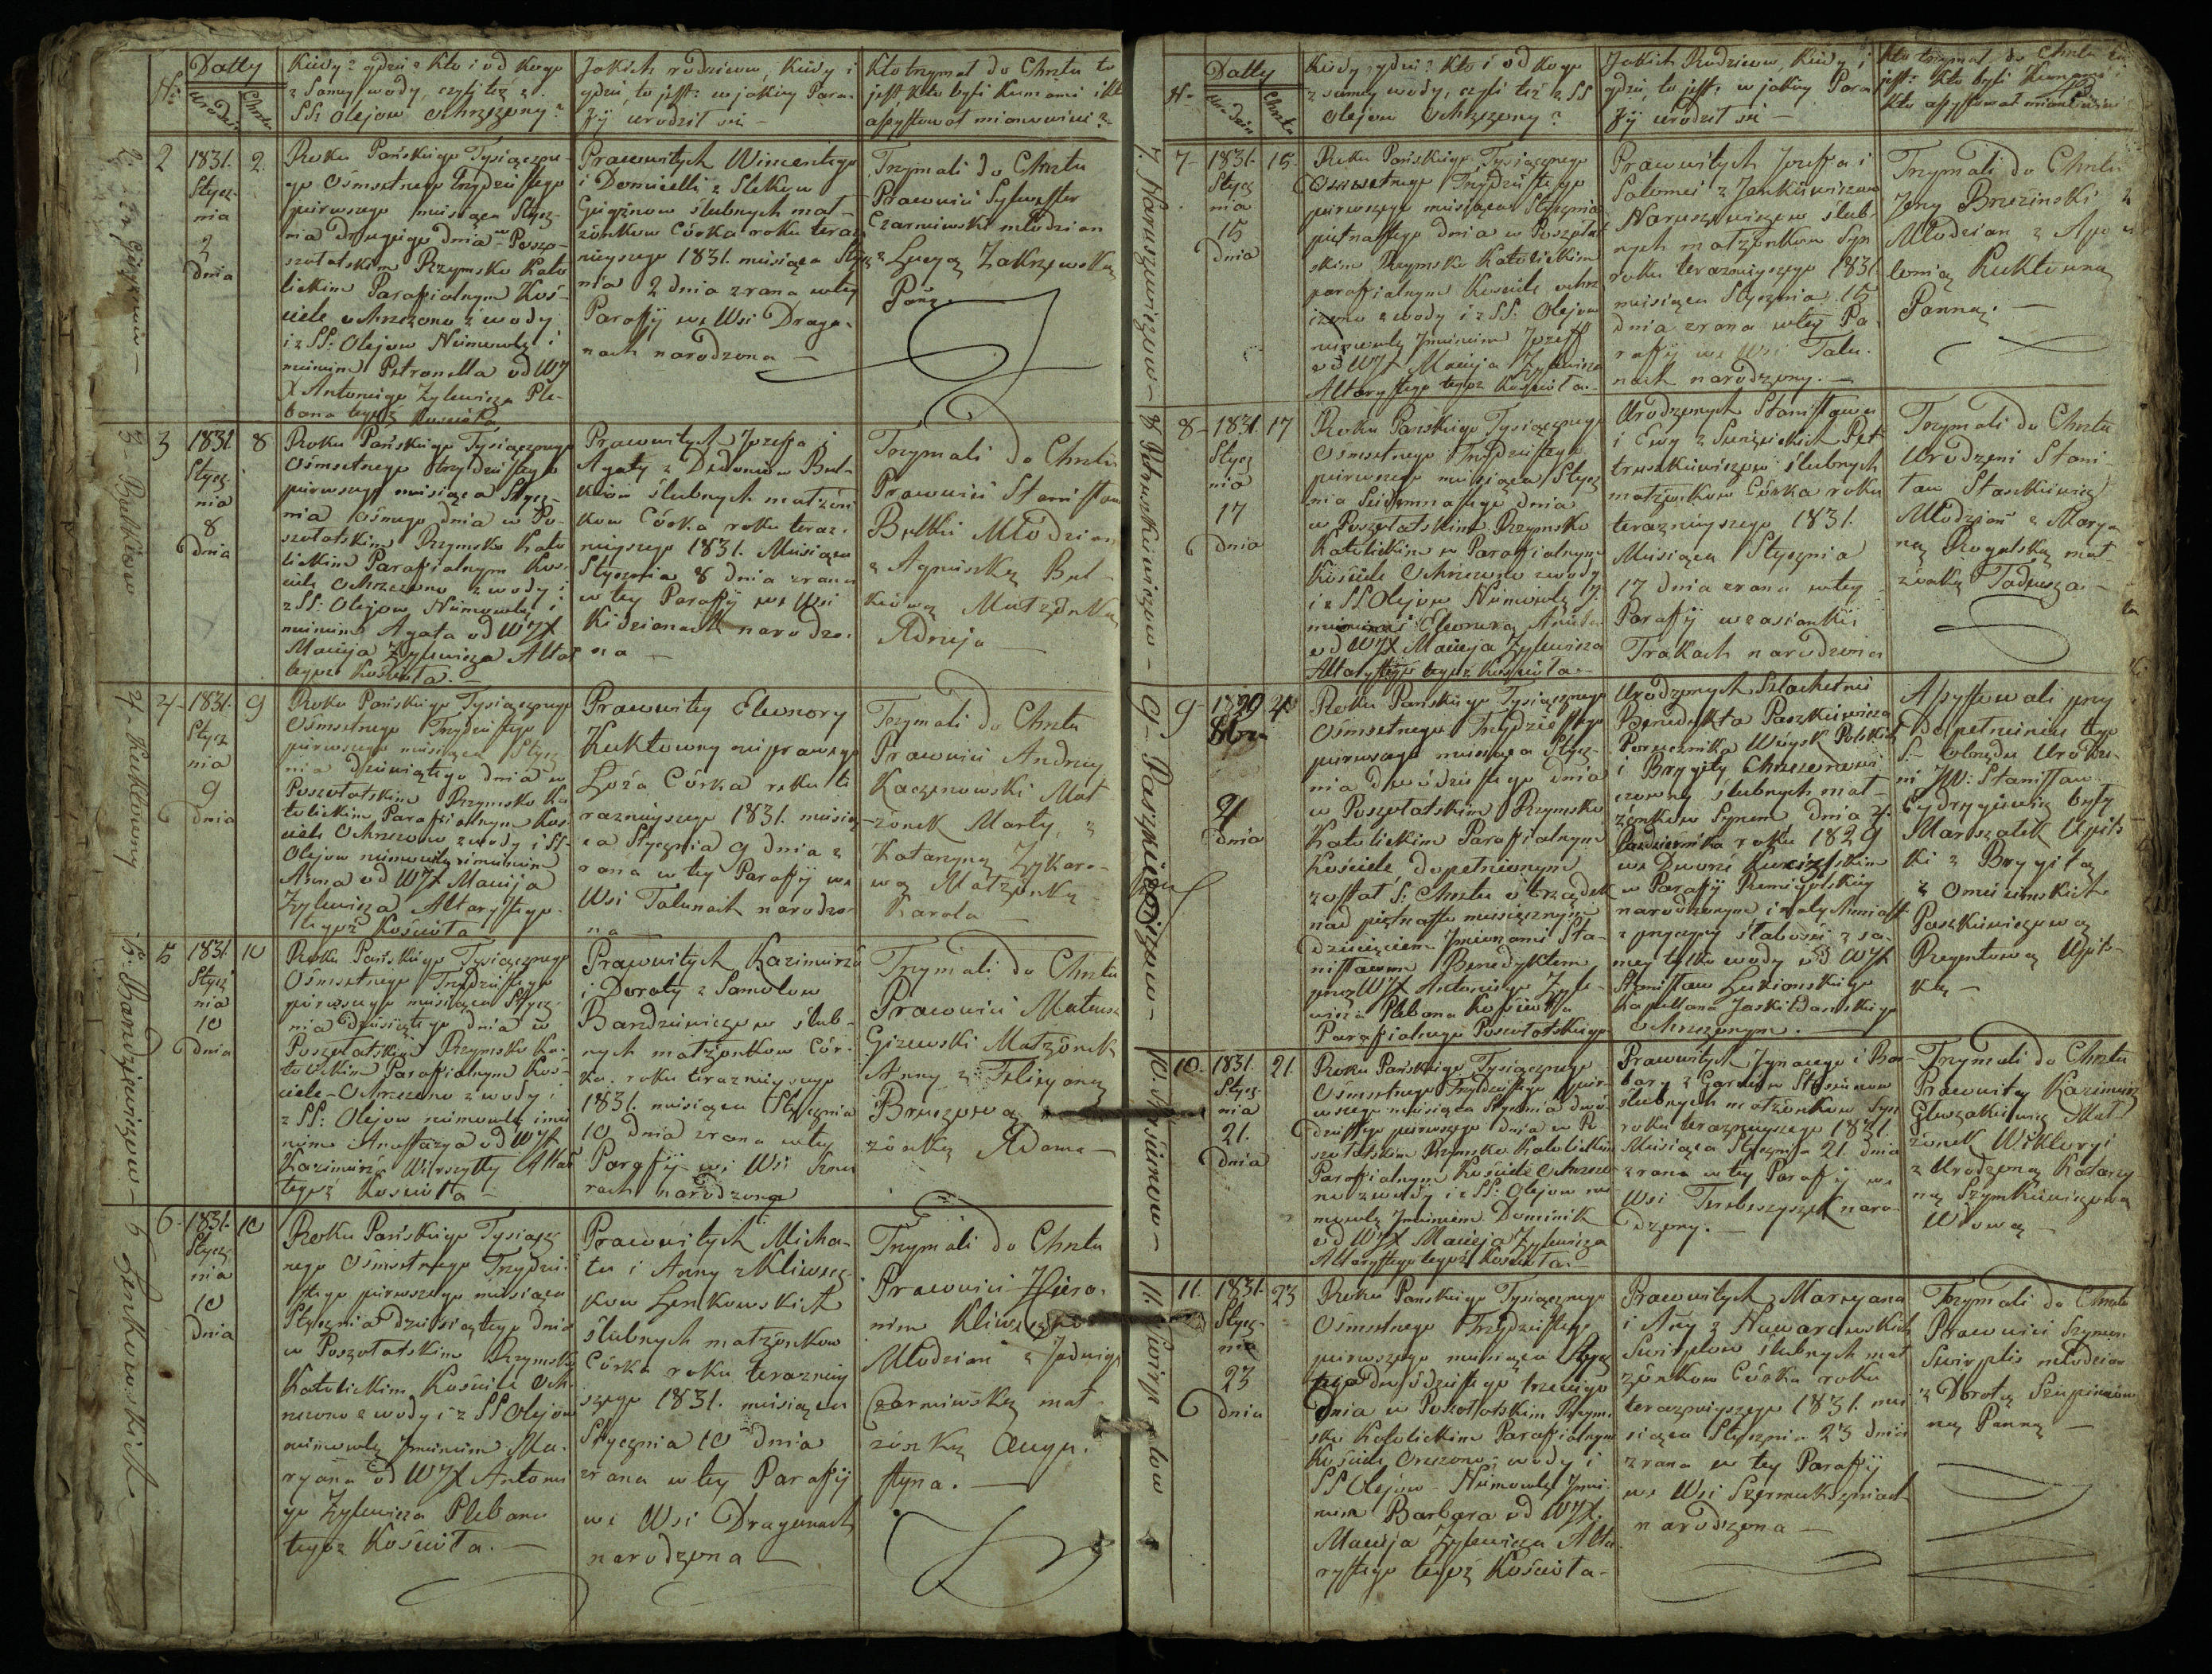 N:
Datty
Urodzin
Chrztu
Kiedy? gdzie? kto i od kogo
z samey wody, czyli też z
SS: Olejow ochrzszony?
Jakich rodzicow, kiedy i
gdzie, to jest: w jakiey Para-
fij urodził sie —
Kto trzymał do Chrztu to
jest, kto byli Kumami i kto
assystował mianowicie?
2
1831.
Stycz-
nia
2
dnia
2.
Roku Pańskiego Tysiączne-
go Ośmsetnego trzydziestego
pierwszego miesiąca Stycz-
nia drugiego dnia w Poszo-
szołatskim Rzymsko Kato
lickim Parafialnym Koś-
ciele ochrzczono z wody
i z SS: Olejow Niemowlę i
mieniem Petronella od WJ
X Antoniego Zylewicza Ple-
bana tegoż Kościoła
Prawowitych Wincentego
i Domicelli z Slekow
ślubnych mał-
żonkow Córka roku teraz
nieyszego 1831. miesiąca Stycz
nia 2 dnia z rana w tey
Parafij we Wsi Draga-
nach narodzona —
Trzymali do Chrztu
Prawowici Sylwester
Czarniewski młodzian
z Łucyą Zakrzewską
Paną
3
1831
Stycz-
nia
8
dnia
8
Roku Pańskiego Tysiącznego
Ośmsetnego trzydziestego
pierwszego miesiąca Stycz-
nia Osmego dnia w Po-
szołatskim Rzymsko Kato
lickim Parafialnym Kos-
ciele Ochrzczono z wody i
z SS: Olejow Niemowlę i
mieniem Agata od WJX
Macieja Zylewicza Altar
tegoż Kościoła. —
Prawowitych Jozefa i
Agaty z Dedoniow But-
kiow ślubnych małżon
kow Córka roku teraz-
nieyszego 1831. Miesiąca
Stycznia 8 dnia z rana
w tey Parafij we Wsi
Kidzianach narodzo-
na —
Trzymali do Chrztu
Prawowici Stanisław
Butki Młodzian
z Agnieszką But-
kiową Małżonką
Adreja —
4-
1831.
Stycz
nia
9
dnia
9
Roku Pańskiego Tysiącznego
Ośmsetnego Trzydziestego
pierwszego miesiąca Stycz
nia dziewiątego dnia w
Poszołatskim Rzymsko Ka
tolickim Parafialnym Kos-
ciele Ochrzczono z wody i SS-
Olejow niemowlę imieniem
Anna od WJX Macieja
Zylewicza Altarystego
tegoż Kościoła
Prawowitey Eleonory
Kuktowny nieprawego
Łoża Córka roku te
raznieyszego 1831. miesią
ca Stycznia 9 dnia z
rana w tey Parafij we
Wsi Talunach narodzo-
na —
Trzymali do Chrztu
Prawowici Andrzey
Kaczenowski Mał-
żonek Marty, z
Katarzyną Zykaro-
wą Małżonką
Karola —
5
1831.
Stycz
nia
10
dnia
10
Roku Pańskiego Tysiącznego
Ośmsetnego Trzydziestego
pierwszego miesiąca Stycz-
nia dziesiątego dnia w
Poszołatskim Rzymsko Ka-
tolickim Parafialnym Koś-
ciele Ochrzczono z wody i
z SS: Olejow niemowlę imie
niem Anastazya od WJX
Kazimierza Wierszyłły Altar
tegoż Kościoła —
Prawowitych Kazimierza
i Doroty z Samolow
Bandziewiczow ślub-
nych małżonkow Cór-
ka roku teraznieyszego
1831. miesiąca Stycznia
10 dnia z rana w tey
Parafij we Wsi
rach narodzona
Trzymali do Chrztu
Prawowici Mateusz
Gizewski Małżonek
Anny z Felicyaną
żonką Adama —
6-
1831.
Stycz
nia
10
dnia
10
Roku Pańskiego Tysiącz
nego Ośmsetnego Trzydzie-
stego pierwszego miesiąca
Stycznia dziesiątego dnia
w Poszołatskim Rzymsko
Katolickim Kościele Och-
rzczono z wody i z SS Olejow
niemowlę Jmieniem Ma-
ryana od WJX Antonie
go Zylewicza Plebana
tegoż Kościoła. —
Prawowitych Micha-
ła i Anny z Kliwecz-
kow Łenkowskich
ślubnych małżonkow
Córka roku terazniey
szego 1831. miesiąca
Stycznia 10 dnia
z rana w tey Parafij
we Wsi Draganach
narodzona —
Trzymali do Chrztu
Prawowici Hiero-
nim
Młodzian z Jadwigą
Czarniewską mał-
żonką Augu-
styna. —
3. Butkiow
4. Kuktowny
5. Bandziewiczow —
6 Łenkowskich —
N-
Datty
Urodzin
Chrztu
Kiedy, gdzie? kto i od kogo
z samey wody, czyli też z SS
olejow Ochrzczony?
Jakich Rodzicow, kiedy i
gdzie, to jest: w jakiey Para
fij urodził sie —
Kto trzymał do Chrztu to
jest: kto byli Kumami i
kto assystował mianowicie
7-
1831-
Stycz
nia
15
dnia
15-
Roku Pańskiego Tysiącznego
Ośmsetnego Trzydziestego
pierwszego miesiąca Stycznia
pietnastego dnia w Poszołat
skim Rzymsko Katolickim
parafialnym Kosciele ochrz
czono z wody i z SS: Olejow
niemowlę Jmieniem Jozeff
od WJX Macieja Zylewicza
Altarystego tegoż Kościoła. —
Prawowitych Jozefa i
Salomei z Jankiewiczow
Naruszewiczow ślub-
nych małżonkow Syn
roku teraznieyszego 1831
miesiąca Stycznia 15
dnia z rana w tey Pa-
rafij we Wsi Talu-
nach narodzony. —
Trzymali do Chrztu
Jerzy Brzezinski
Młodzian z Apo
lonią Kuktowną
Panną. —
8-
1831.
Stycz
nia
17
dnia
17
Roku Pańskiego Tysiącznego
Ośmsetnego Trzydziestego
pierwszego miesiąca Stycz
nia Siedmnastego dnia
w Poszołatskim Rzymsko
Katolickim w Parafialnym
Kościele Ochrzczono z wody
i z SS Olejow Niemowlę
Eleonora Aniela
od WJX Macieja Zylewicza
Altarystego tegoż Kościoła —
Urodzonych Stanisława
i Ewy z Pet
truszkiewiczow ślubnych
małżonkow Córka roku
teraznieyszego 1831.
Miesiąca Stycznia
17 dnia z rana w tey
Parafij w zasianku
Trakach narodzona
Trzymali do Chrztu
Urodzeni Stani-
ław Staszkiewicz
Młodzian z Marya
ną Rogalską mał
żonką Tadeusza. —
9-
1829
8bra
4
dnia
20
Roku Pańskiego Tysiącznego
Ośmsetnego Trzydziestego
pierwszego miesiąca Stycz-
nia dwódziestego dnia
w Poszołatskim Rzymsko
Katolickim Parafialnym
Kościele, dopełnionym
został S: Chrztu obrządek
nad pietnasto miesięcznym
dziecięciem Jmionami Sta-
nisławem Benedyktem
przez WJX Antoniego Zyle-
wicza Plebana Kościoła
Parafialnego Poszołatskiego
Urodzonych Szlachetnie
Benedykta Paszkiewicza
Porucznika Woysk Polskich
i Brygity Chrzczonowi
czowny ślubnych mał-
żonkow Synem dnia 4.
Października roku 1829
we Dworze
w Parafij Remigolskiey
narodzonym i
z przyczyny słabości z sa-
mey tylko wody od WJX
Stanisława
Kapellana
Ochrzczonym. —
Assystowali przy
Dopełnieniu tego
S. Obrzędu Urodze-
ni JW: Stanisław
były
Marszałek Upit-
ski z Brygitą
z
Paszkiewiczową
Regentową Upits-
ką —
10-
1831.
Stycz-
nia
21.
dnia
21.
Roku Pańskiego Tysiącznego
Ośmsetnego Trzydziestego pier-
wszego miesiąca Stycznia dwó-
dziestego pierwszego dnia w Po-
szołatskim Rzymsko Katolickim
Parafialnym Kościele Ochrzczo
no z wody i z SS: Olejow nie
mowlę Jmieniem Dominik
od WJX Macieja Zylewicza
Altarystego tegoż Kościoła. —
Prawowitych Jgnacego i Bar-
bary z
ślubnych małżonkow Syn
roku teraznieyszego 1831.
Miesiąca Stycznia 21. dnia
z rana w tey Parafij we
Wsi naro-
dzony. —
Trzymali do Chrztu
Prawowity Kazimierz
Głuszakiewicz Mał-
żonek Wiktoryi
z Urodzoną Katarzy
ną Szymkiewiczową
Wdową —
11.
1831.
Stycz-
nia
23
dnia
23
Roku Pańskiego Tysiącznego
Ośmsetnego Trzydziestego
pierwszego miesiąca Stycz
dwódziestego trzeciego
dnia w Poszołatskim Rzym-
sko Katolickim Parafialnym
Kościele Orzczono z wody i
SS Olejów Niemowlę Jmie-
niem Barbara od WJX.
Macieja Zylewicza Alta-
rystego tegoż Kościoła —
Prawowitych Maryana
i Any z Nawarawskich
ślubnych mał
żonkow Córka roku
teraznieyszego 1831. mie
siąca Stycznia 23 dnia
z rana w tey Parafij
we Wsi
narodzona —
Trzymali do Chrztu
Prawowici Szymon
młodzian
z Dorotą
ną Panną —
7. Naruszewiczow —
8 Petruszkiewiczow —
9- Paszkiewiczow —